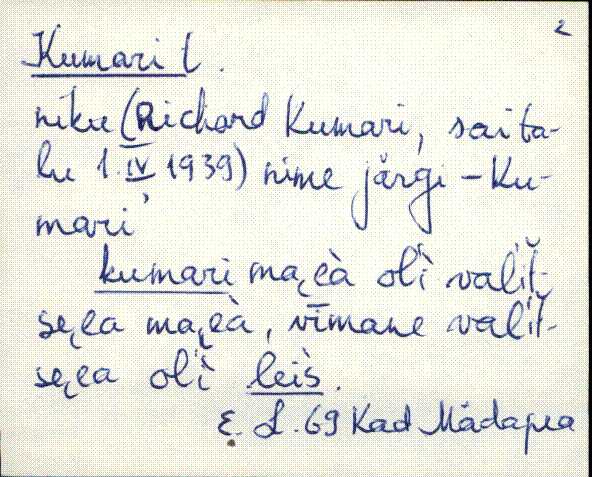 2
Kumari t.
niku (Richard Kumari, sai ta-
lu 1. IV 1939) nime järgi – Ku-
mari
kumari ma̮eà oĺì valit̆-
se̮ea ma̮eà, vīmane valit̆-
se̮ea oĺì leìs.
E. L. 69 Kad Mädapea